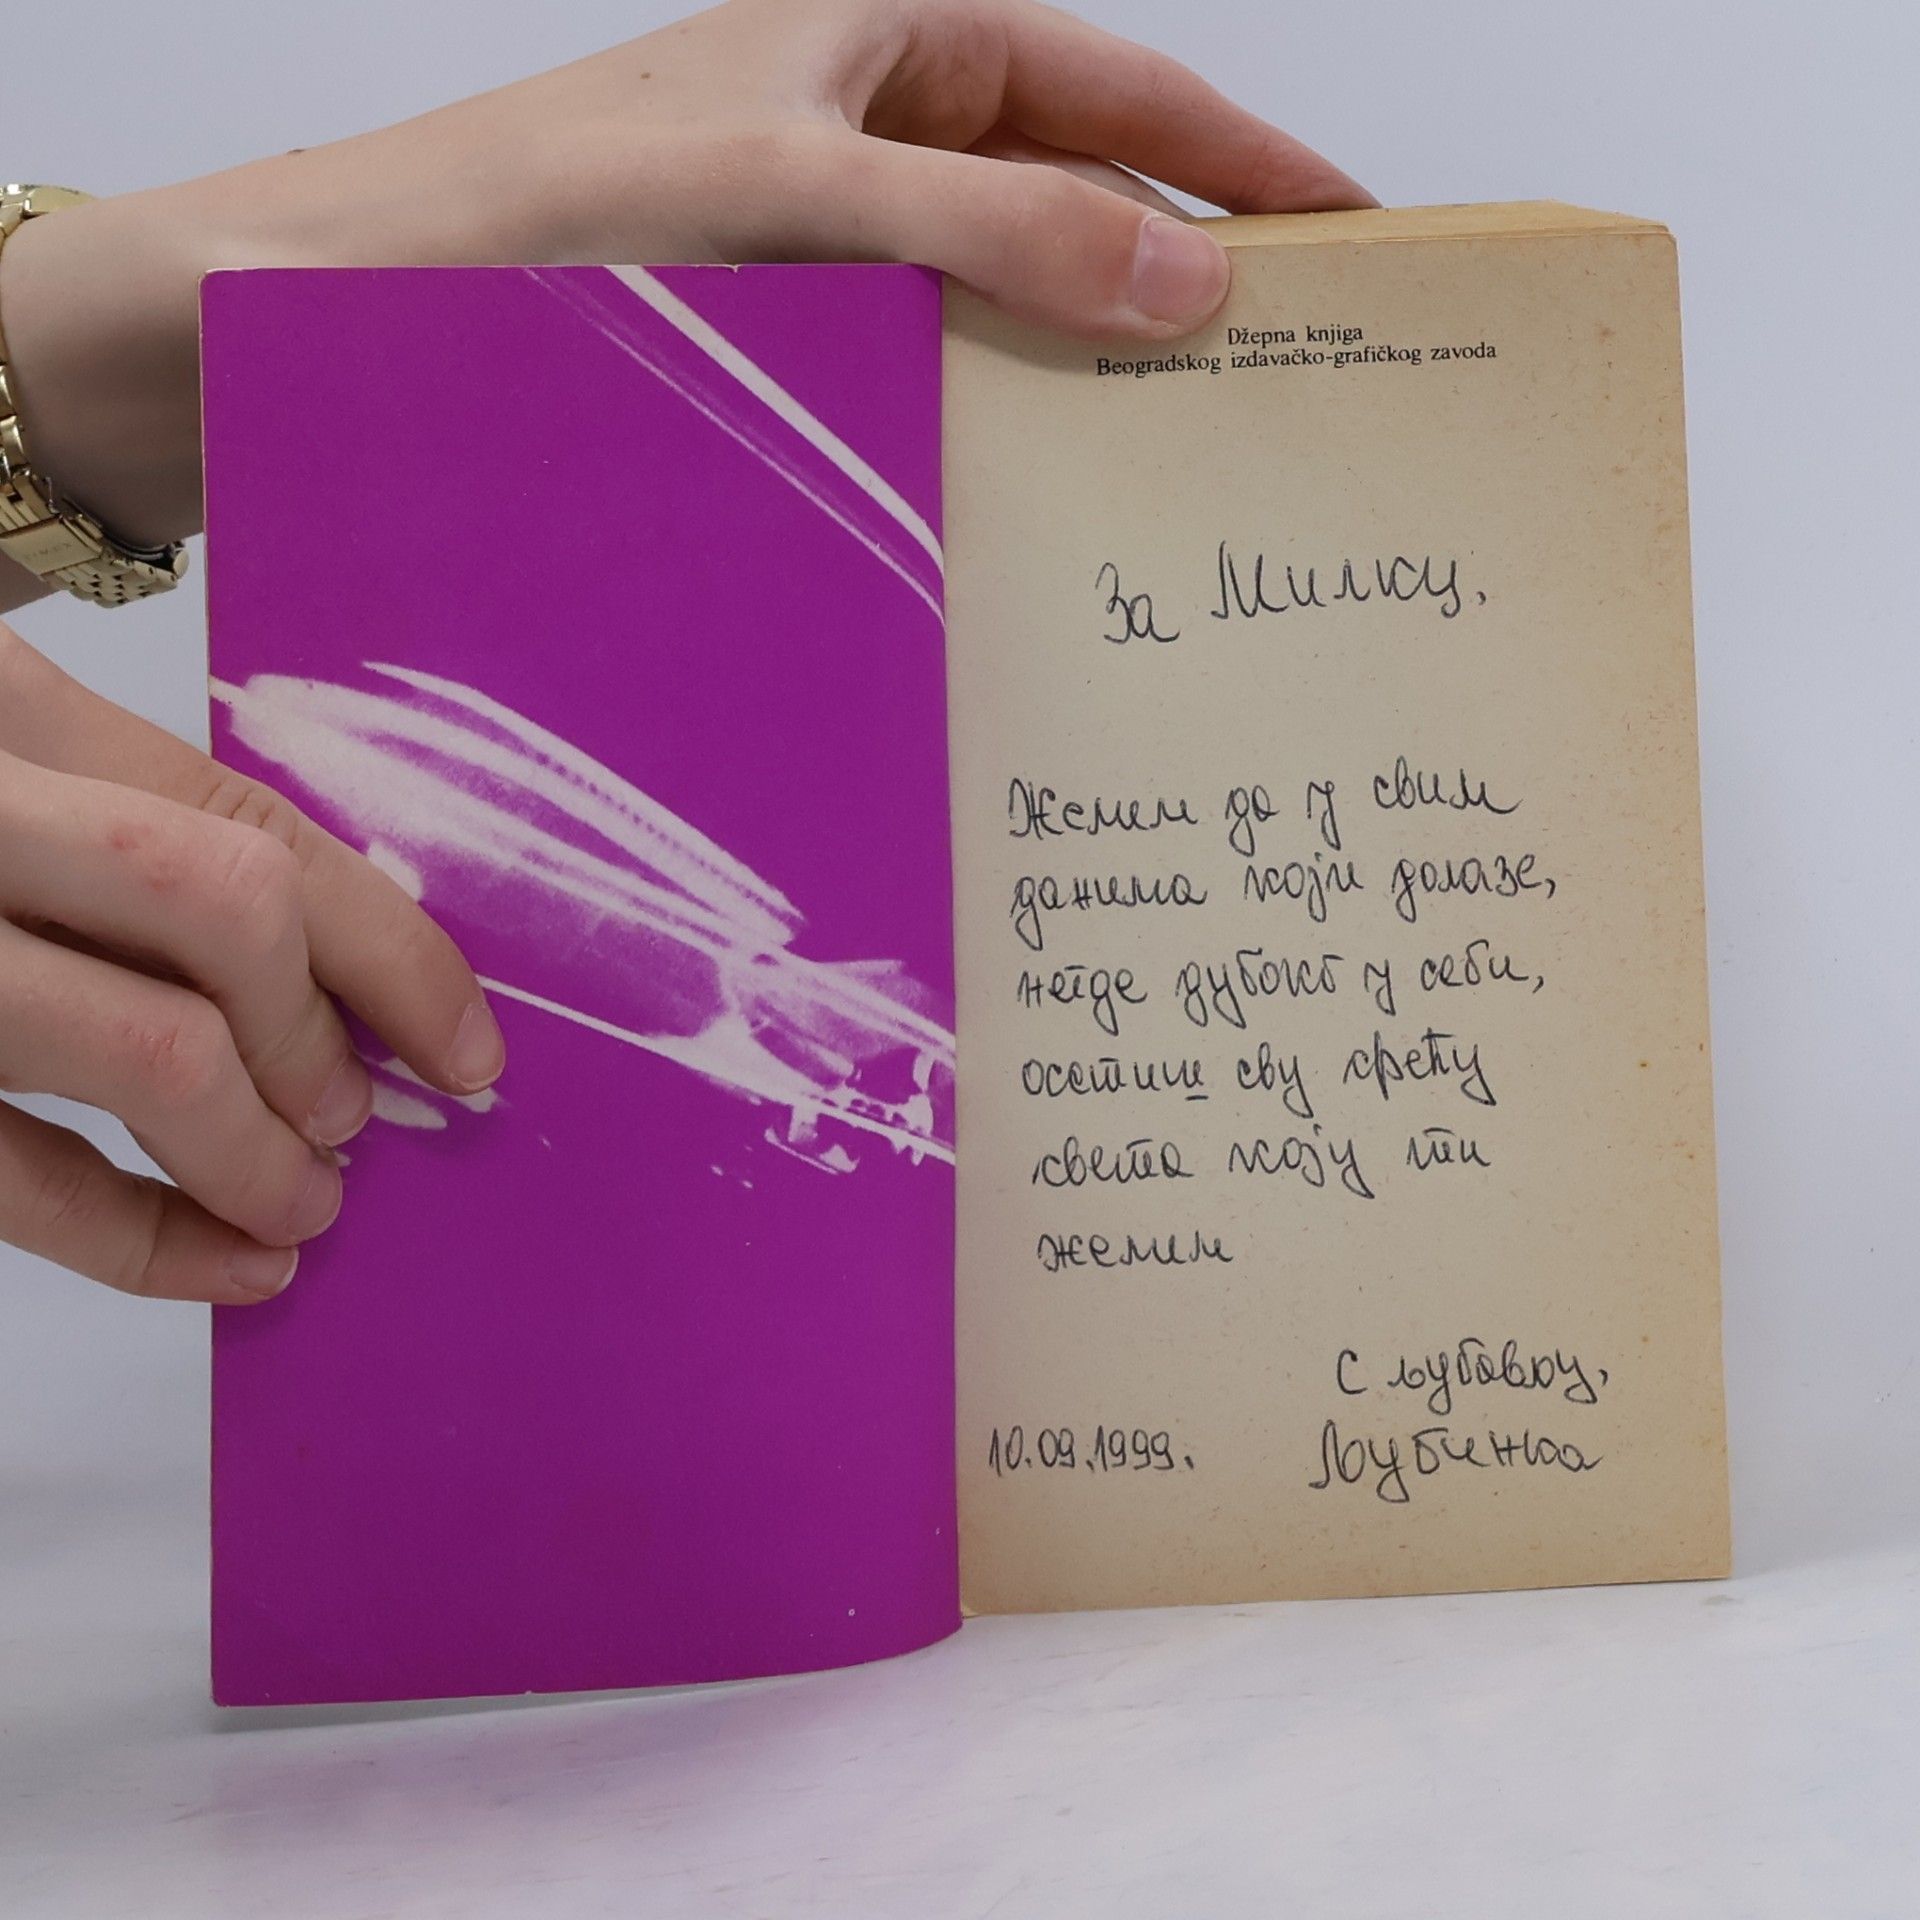 Džepna knjiga
Beogradskog izdavačko-grafičkog zavoda
За Милку,
Желим да у свим
данима који долазе,
негде дубоко у себи,
осетиш сву срећу
света коју ти
желим
С љубављу,
10.09.1999. Љубинка
TIMEX